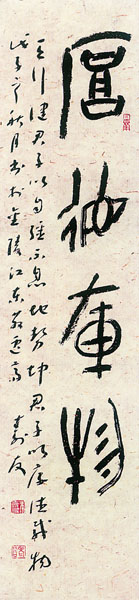 厚德載物
天行健君子以自強不息地勢坤君子以厚德載物
戊子年秋月書於金陵江東